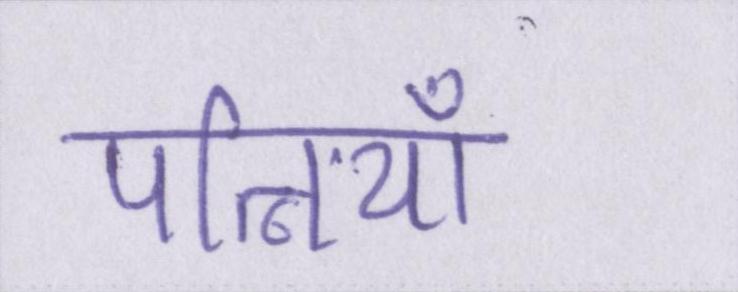 पत्नियाँ